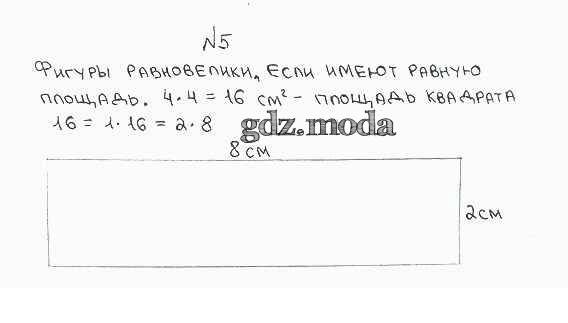 №5
Фигуры равновелики, если имеют равную
площадь. 4·4 = 16 см² – площадь квадрата
16 = 1·16 = 2·8 gdz.moda
8 см
2 см